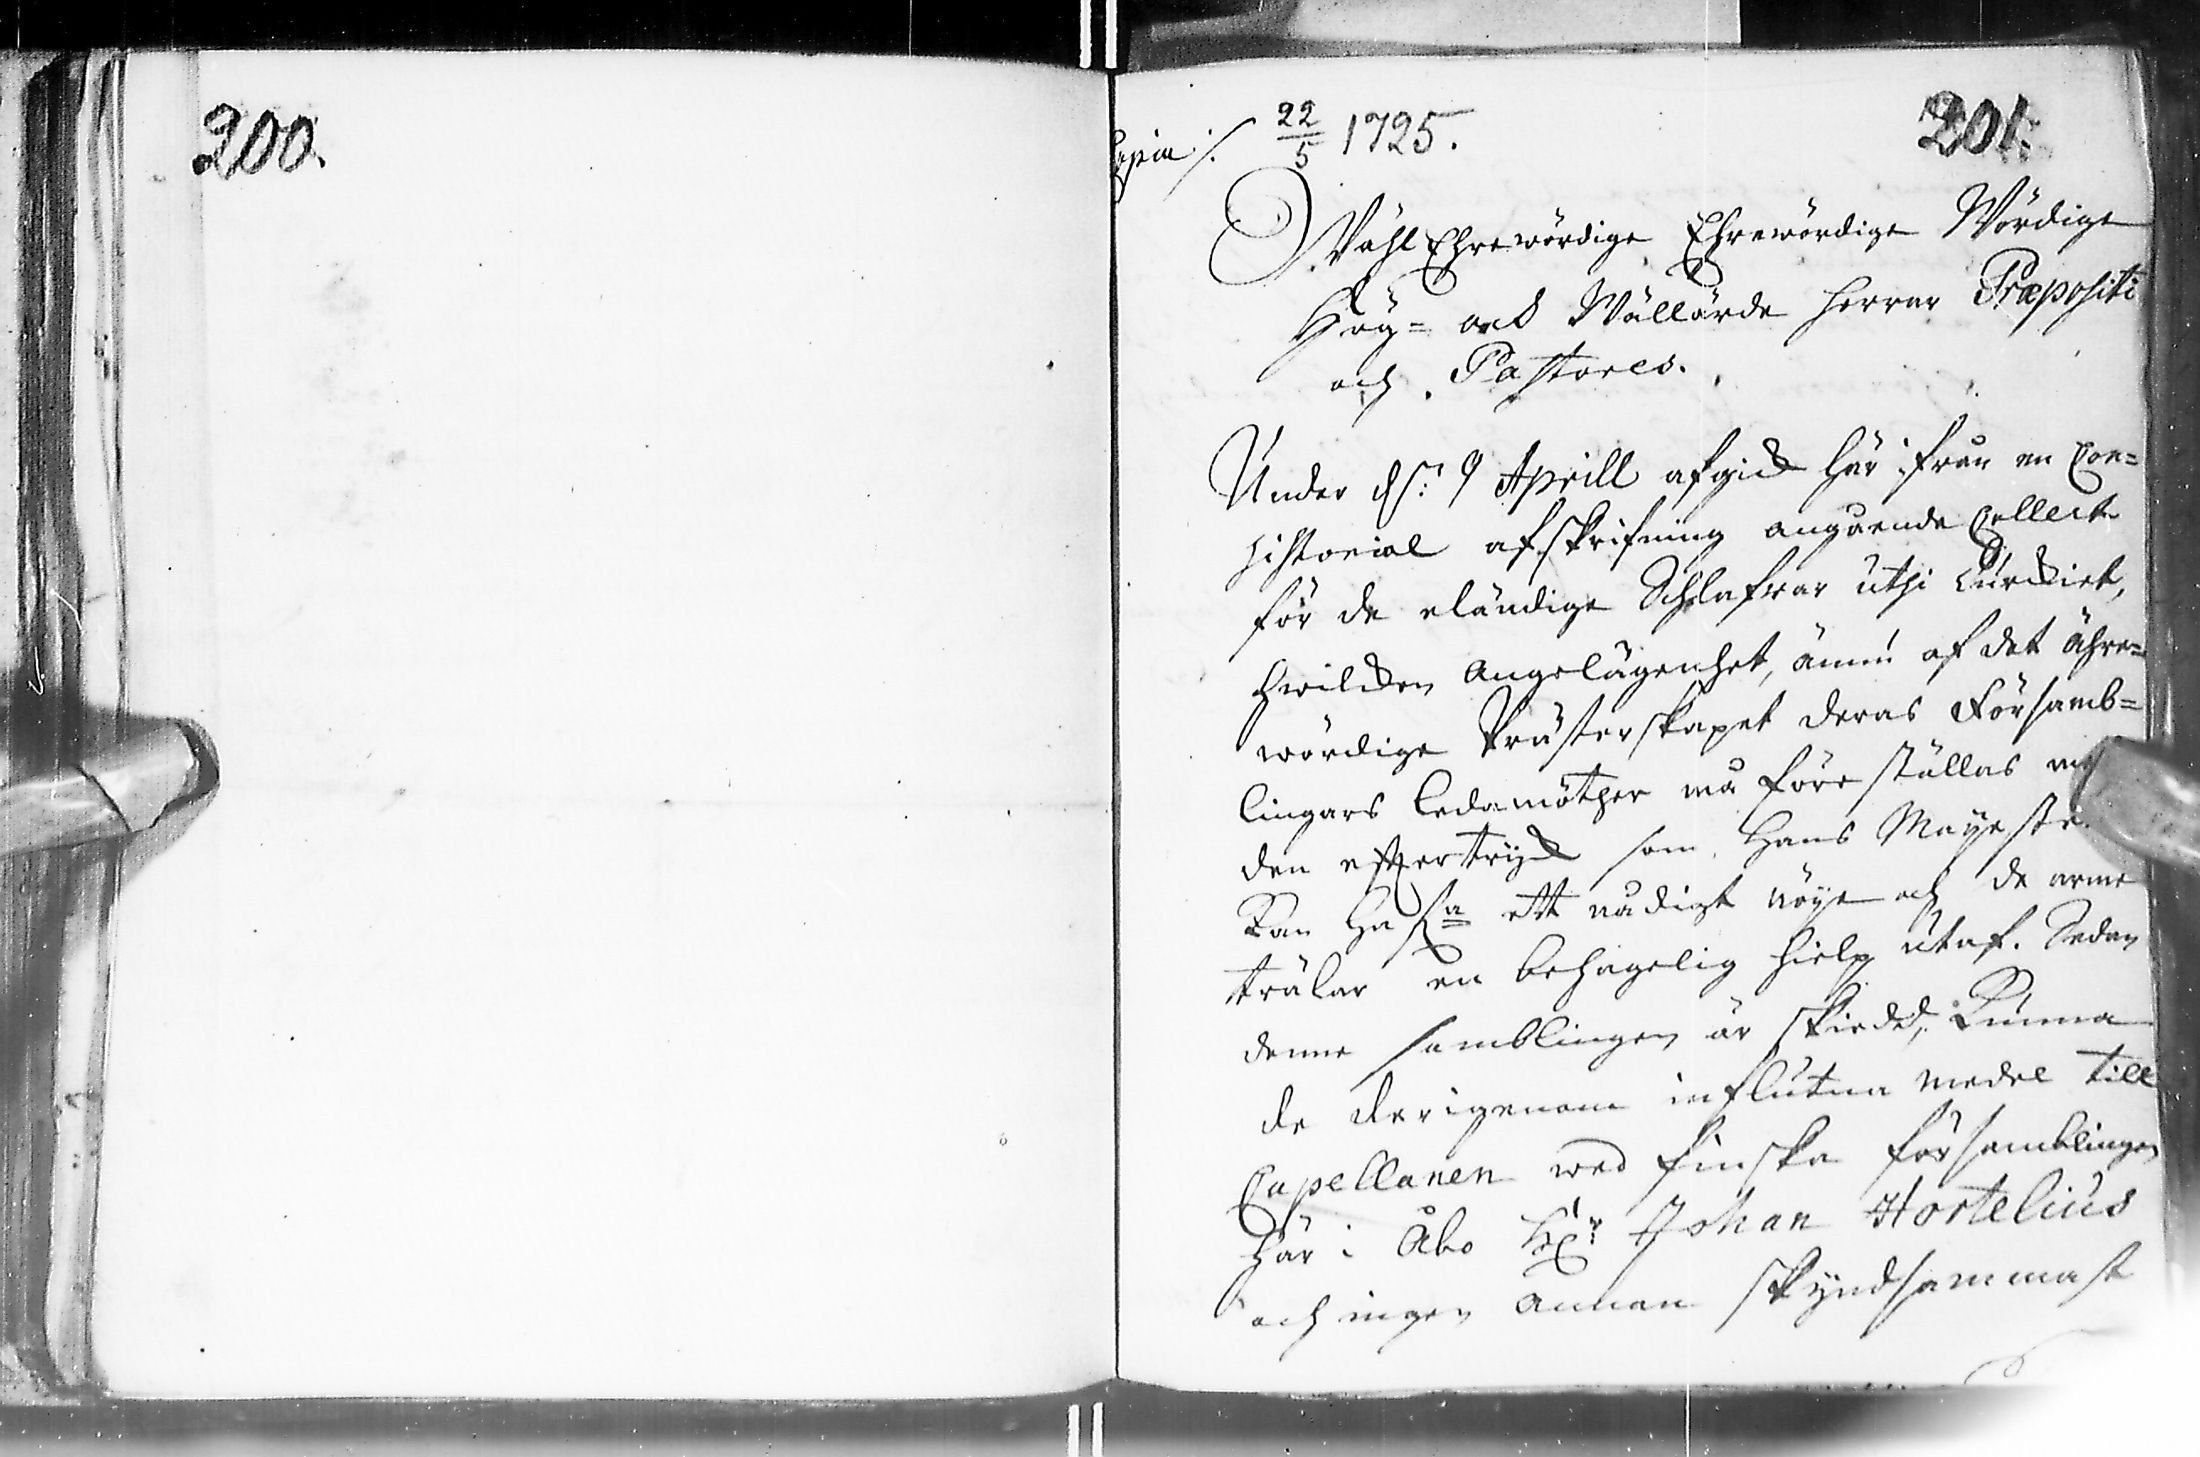 200.
Copia /.
22/5 1725.
201.
WählEhrewördige Ehrewördige Wördige
Hög= och Wällärde herrar Præpositi
och Pastores.
Under d. 9 Aprill afgick här ifrån en Con=
sistorial afskrifning angående Collect
för de eländige Schlafvar uthi Turckiet,
hwilcken angelägenhet, ännu af det ähre=
wördige Prästerskapet deras Församb=
lingars Ledamöther må föreställas med
den eftertryck som Hans Mayestet
Kan hafa ett nådigt nöye och de arme
trälar en behagelig hielp utaf. Sedan
denne samblingen är skiedd, Kunna
de derigenom influtna medel till
Capellanen wed finska församblingen
här i Åbo H:r Johan Hortelius
och ingen annan skyndsammast